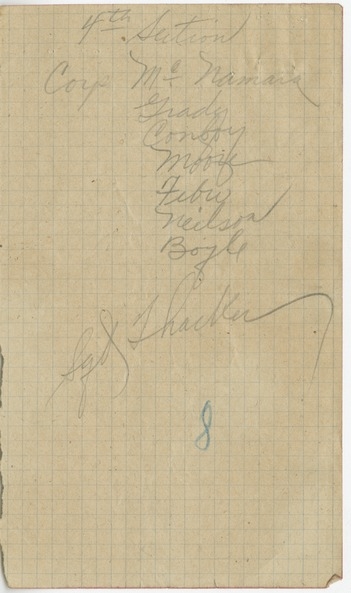 4th Section
Corp Mc Namara
Grady
Conboy
Moore
Neilson
Boyle
Sgt Thacker
8